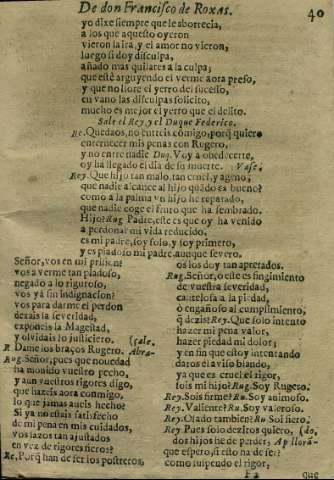 De don Francisco de Roxas. 40
yo dixe siempre que le aborrecia,
a los que aquesto oyeron
vieron la ira, y el amor no vieron,
luego si doy disculpa,
añado mas quilates a la culpa;
que estè arguyendo el verme aora preso,
y que no llore el yerro del sucesso,
en vano las disculpas solicito,
mucho es mejor el yerro que el delito.
Sale el Rey, y el Duque Federico.
Re. Quedaos, no entreis cõmigo, porq̃ quiero
enternecer mis penas con Rugero,
y no entre nadie Duq. Voy a obedecerte,
oy ha llegado el dia de su muerte. Vase.
Rey. Que hijo tan malo, tan cruel, y ageno,
que nadie alcance al hijo quãdo es bueno?
como a la palma vn hijo he reparado,
que nadie coge el fruto que ha sembrado.
Hijo? Rug Padre, este es que oy ha venido
a perdonar mi vida reducido,
es mi padre, soy solo, y soy primero,
y es piadoso mi padre, aunque severo.
Señor, vos en mi prision?
vos a verme tan piadoso,
negado a lo riguroso,
vos yà sin indignacion?
vos para darme el perdon
dexais la severidad,
exponeis la Magestad,
y olvidais lo justiciero.
R. Dame los braços Rugero. Abra-
Rug. Señor, pues que novedad
ha movido vuestro pecho,
y aun vuestros rigores digo,
que hazeis aora conmigo,
lo que jamas aueis hecho?
Si ya no estais satisfecho
de mi pena en mis cuidados,
vos lazos tan ajustados
en vez de rigores fieros?
Re. Porq̃ han de ser los postreros,
os los doy tan apretados.
Rug. Señor, o este es fingimiento
de vuestra severidad,
cautelosa a la piedad,
o engañoso al cumplimiento,
q̃ dezis? Rey. Que solo intento
hazer mi pena valor,
hazer piedad mi dolor;
y en fin que estoy intentando
dar os el aviso blando,
ya que es cruel el rigor,
sois mi hijo? Rug. Soy Rugero.
Rey. Sois firme? Ru. Soy animoso.
Rey. Valiente? Ru. Soy valeroso.
Rey. Osado tambien? Ru. Soi fiero.
Rey Pues solo deziros quiero,
dos hijos he de perder,
que espero, si esto ha de ser?
como suspendo el rigor;
que